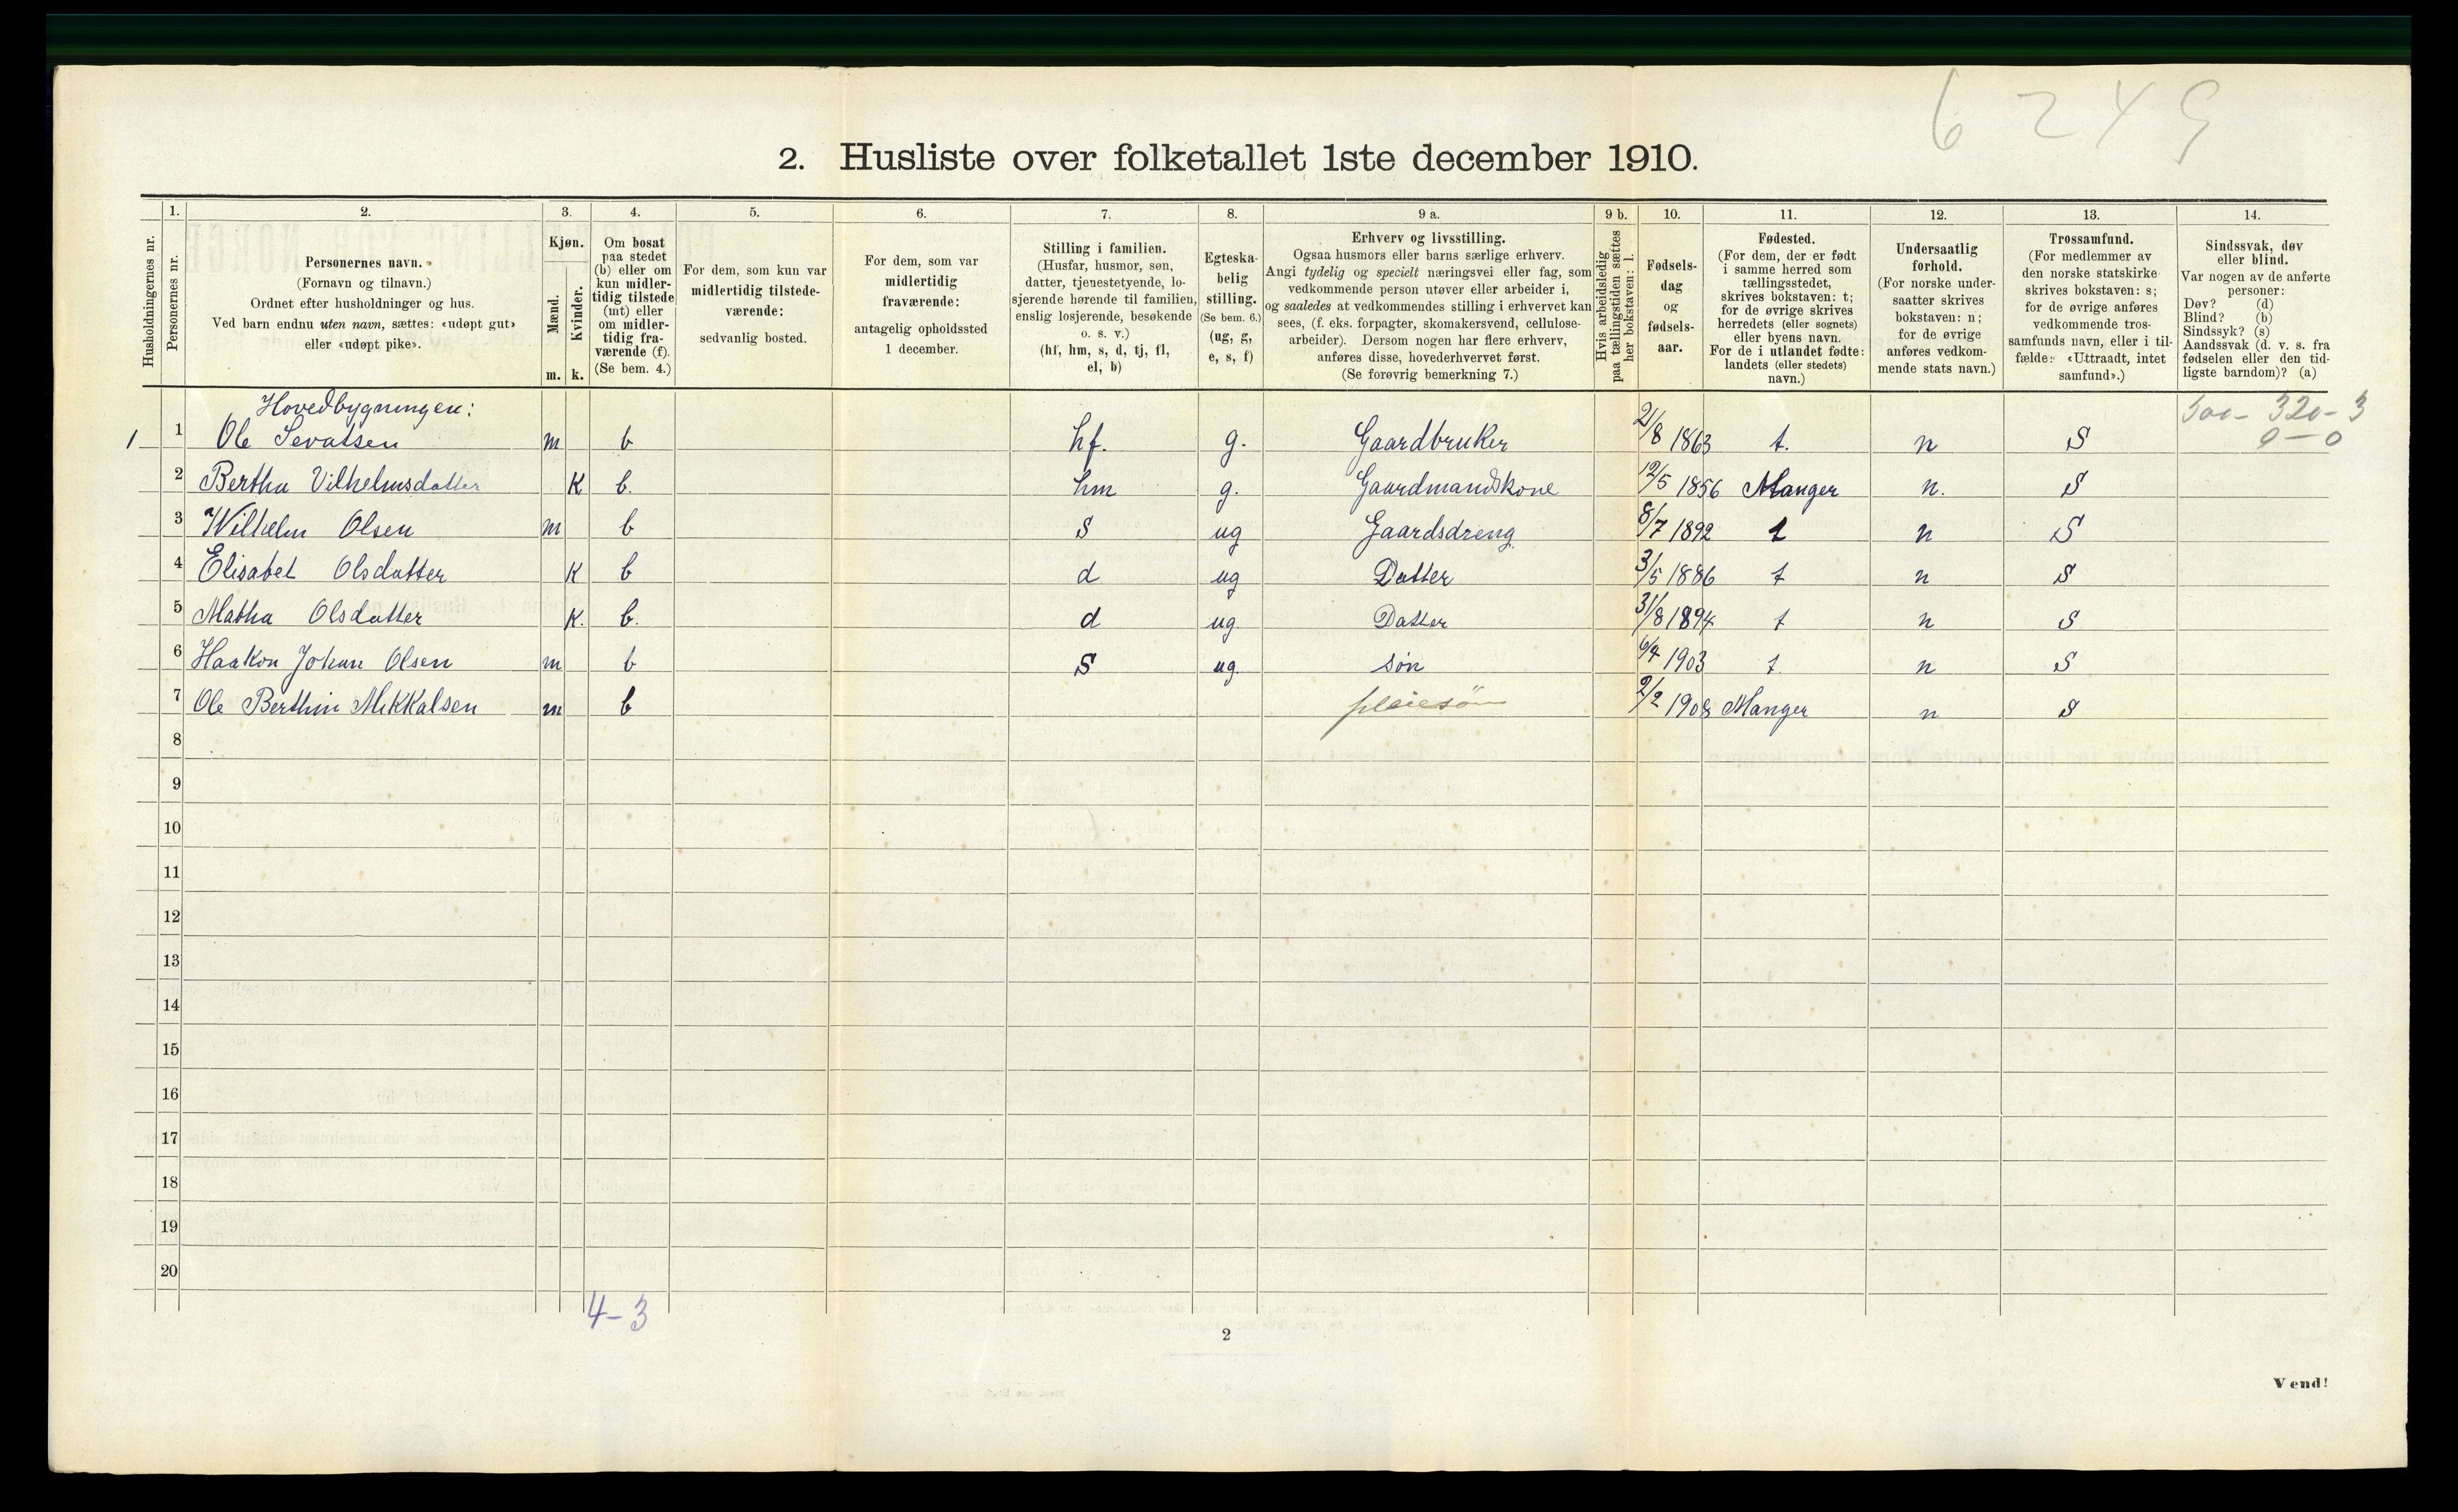 6249
2. Husliste over folketallet 1ste december 1910.
1. 2. 3. 4. 5. 6. 7. 8. 9 a. 9 b. 10. 11. 12. 13. 14.
Husholdningernes nr.
Personernes nr.
Personernes navn.
(Fornavn og tilnavn.)
Ordnet efter husholdninger og hus.
Ved barn endnu uten navn, sættes: «udøpt gut»
eller «udøpt pike».
Kjøn.
Mænd.
Kvinder.
m. k.
Om bosat
paa stedet
(b) eller om
kun midler-
tidig tilstede
(mt) eller
om midler-
tidig fra-
værende (f).
(Se bem. 4.)
For dem, som kun var
midlertidig tilstede-
værende:
sedvanlig bosted.
For dem, som var
midlertidig
fraværende:
antagelig opholdssted
1 december.
Stilling i familien.
(Husfar, husmor, søn,
datter, tjenestetyende, lo-
sjerende hørende til familien,
enslig losjerende, besøkende
o. s. v.)
(hf, hm, s, d, tj, fl,
el, b)
Egteska-
belig
stilling.
(Se bem. 6.)
(ug, g,
e, s, f)
Erhverv og livsstilling.
Ogsaa husmors eller barns særlige erhverv.
Angi tydelig og specielt næringsvei eller fag, som
vedkommende person utøver eller arbeider i,
og saaledes at vedkommendes stilling i erhvervet kan
sees, (f. eks. forpagter, skomakersvend, cellulose-
arbeider). Dersom nogen har flere erhverv,
anføres disse, hovederhvervet først.
(Se forøvrig bemerkning 7.)
Hvis arbeidsledig
paa tællingstiden sættes
her bokstaven: l.
Fødsels-
dag
og
fødsels-
aar.
Fødested.
(For dem, der er født
i samme herred som
tællingsstedet,
skrives bokstaven: t;
for de øvrige skrives
herredets (eller sognets)
eller byens navn.
For de i utlandet fødte:
landets (eller stedets)
navn.)
Undersaatlig
forhold.
(For norske under-
saatter skrives
bokstaven: n;
for de øvrige
anføres vedkom-
mende stats navn.)
Trossamfund.
(For medlemmer av
den norske statskirke
skrives bokstaven: s;
for de øvrige anføres
vedkommende tros-
samfunds navn, eller i til-
fælde: «Uttraadt, intet
samfund».)
Sindssvak, døv
eller blind.
Var nogen av de anførte
personer:
Døv? (d)
Blind? (b)
Sindssyk? (s)
Aandssvak (d. v. s. fra
fødselen eller den tid-
ligste barndom)? (a)
Hovedbygningen: 300 - 320 - 3
1 1 Ole Sevatsen m b hf. g. Gaardbruker 21/8 1863 t. n S 0 - 0
2 Bertha Vilhelmsdatter K b. hm g. Gaardmandskone 12/5 1856 Manger n. S
3 Wilhelm Olsen m b S ug Gaardsdreng 8/7 1892 t n S
4 Elisabet Olsdatter K b d ug Datter 3/5 1886 t n S
5 Matha Olsdatter K. b. d ug. Datter 31/8 1894 t n S
6 Haakon Johan Olsen m b S ug. søn 6/4 1903 t. n S
7 Ole Berthin Mikkalsen m b pleiesøn 2/2 1908 Manger n S
8
9
10
11
12
13
14
15
16
17
18
19
20
4-3
2
Vend!